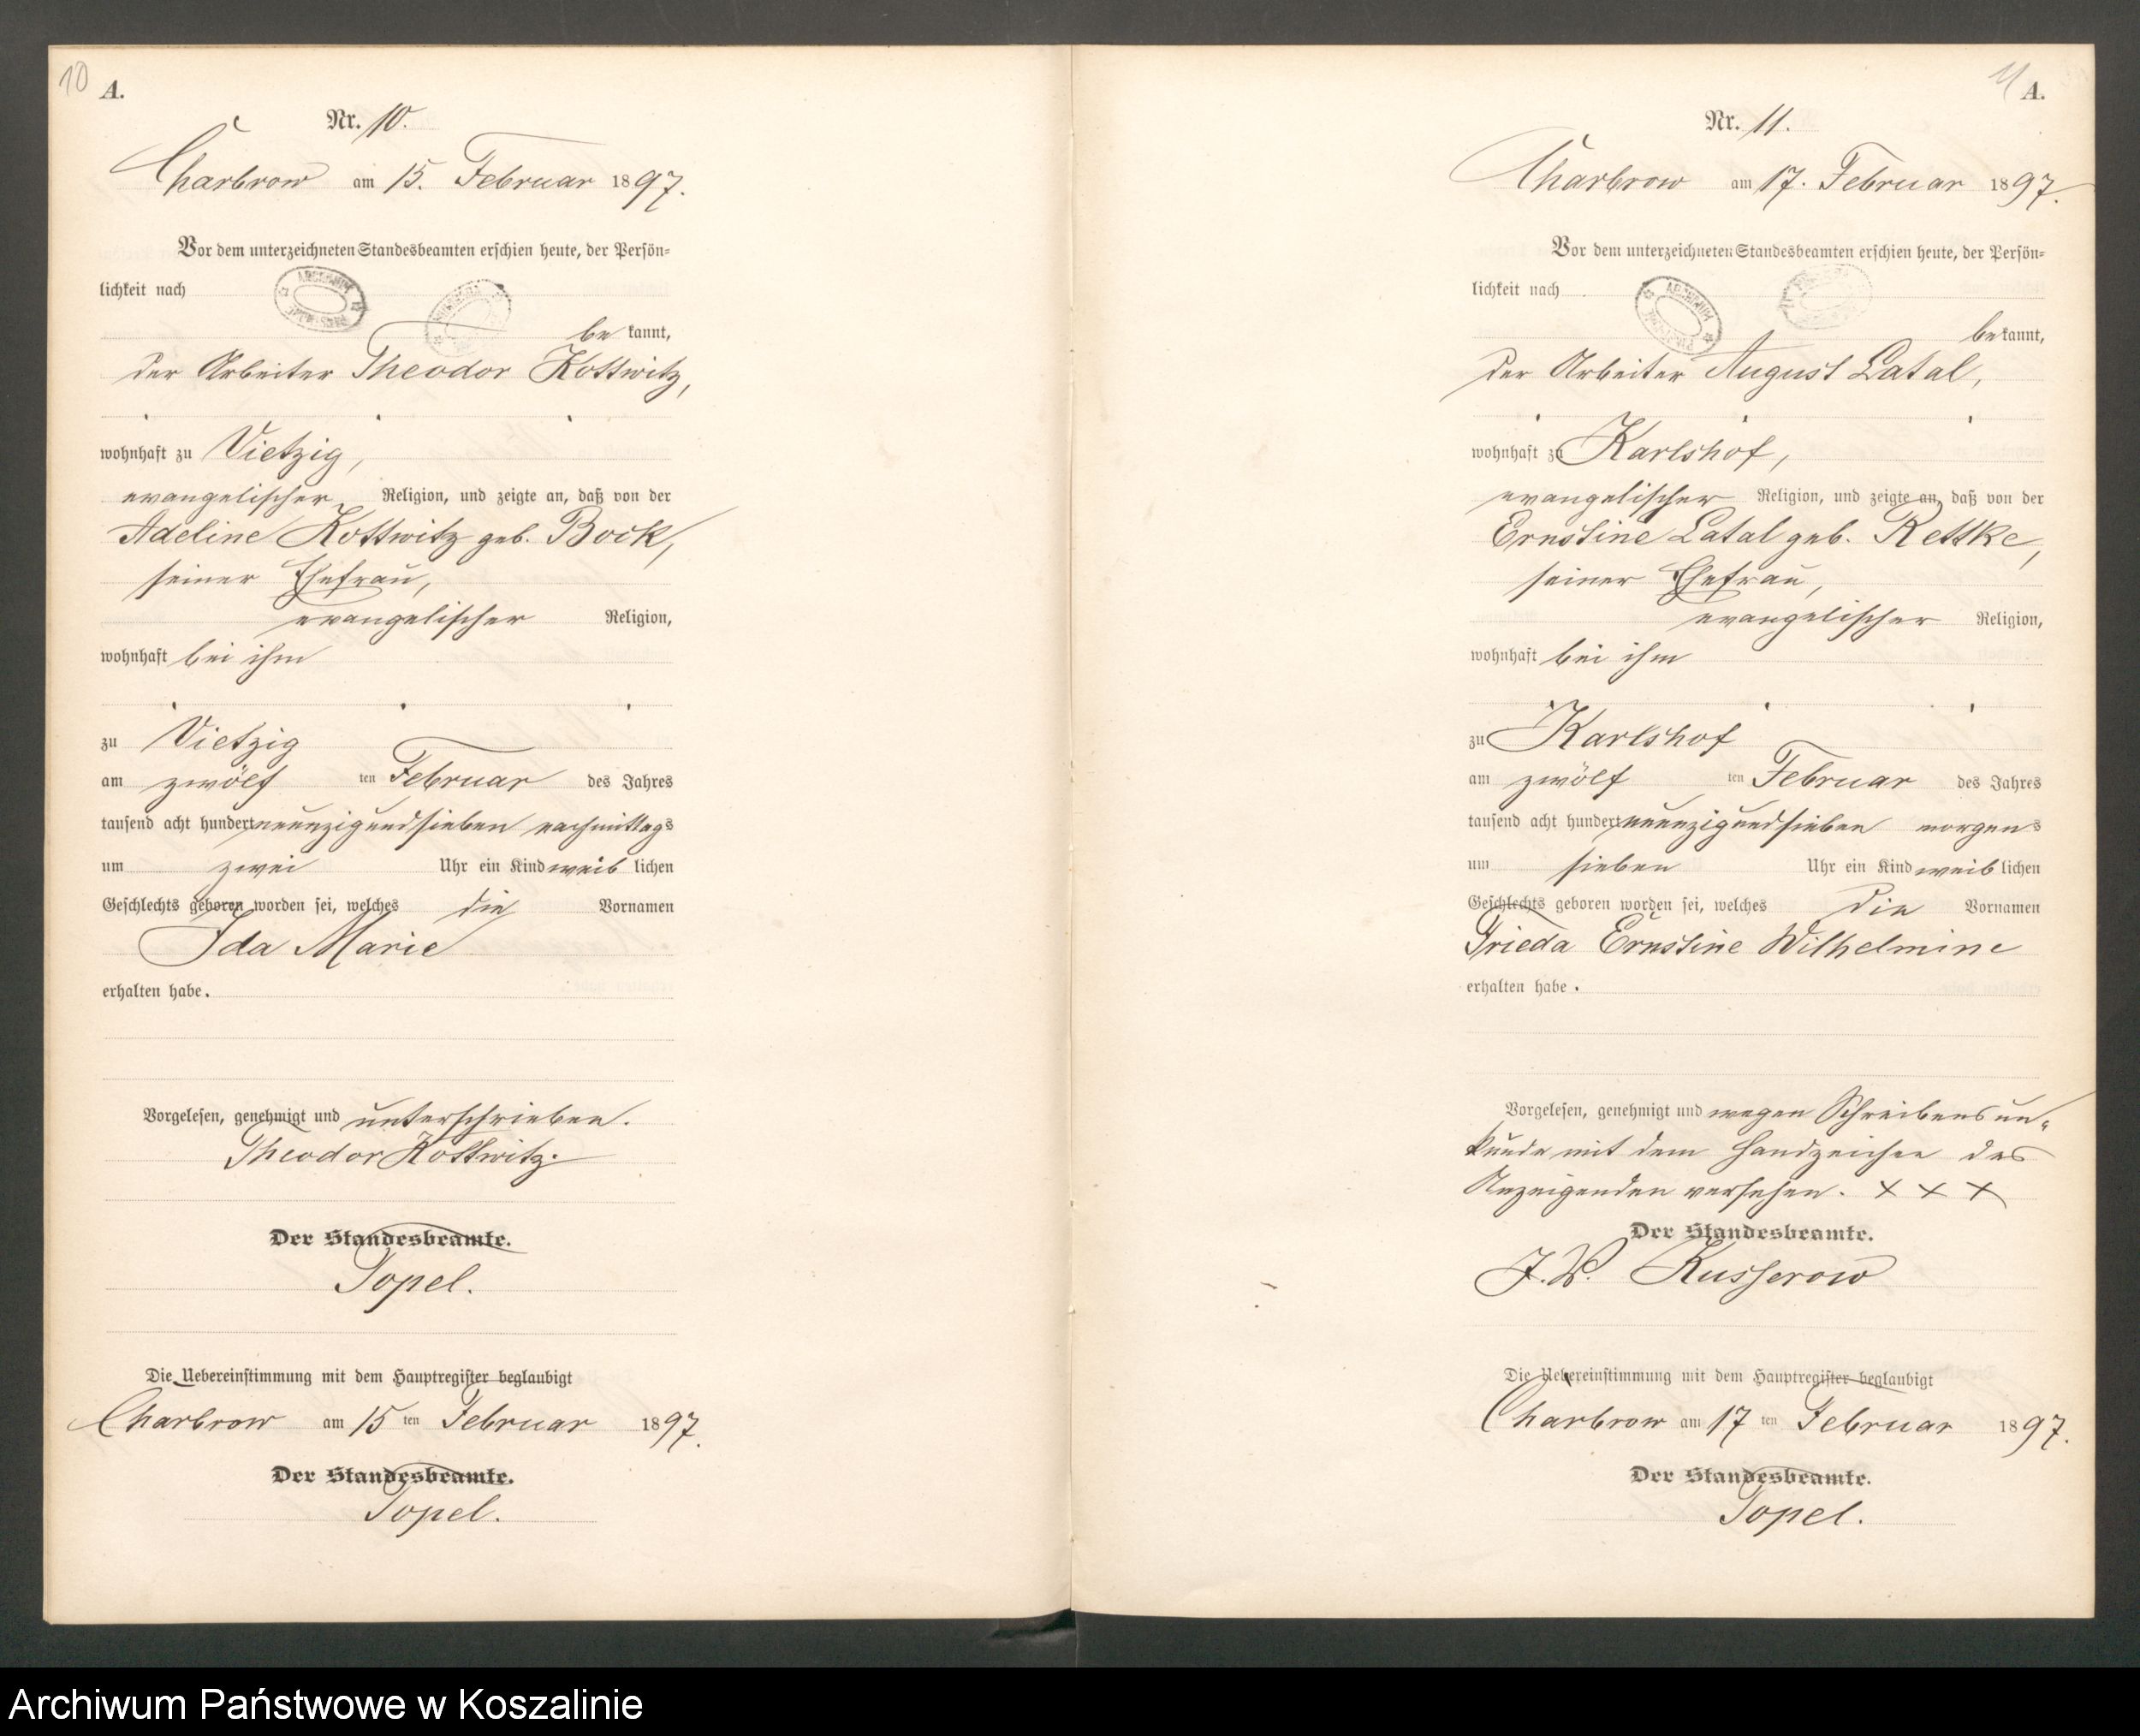 10
A.
Nr. 10.
Charbrow am 15. Februar 1897.
Vor dem unterzeichneten Standesbeamten erschien heute, der Persön-
lichkeit nach
be kannt,
der Arbeiter Theodor Kottwitz,
wohnhaft zu Vietzig,
evangelischer Religion, und zeigte an, daß von der
Adeline Kottwitz geb. Bock,
seiner Ehefrau,
evangelischer Religion,
wohnhaft bei ihm
zu Vietzig
am zwölf ten Februar des Jahres
tausend acht hundert neunzig und sieben nachmittags
um zwei Uhr ein Kind weib lichen
Geschlechts geboren worden sei, welches die Vornamen
Ida Marie
erhalten habe.
Vorgelesen, genehmigt und unterschrieben.
Theodor Kottwitz.
Der Standesbeamte.
Topel.
Die Uebereinstimmung mit dem Hauptregister beglaubigt
Charbrow am 15 ten Februar 1897.
Der Standesbeamte.
Topel.
11
A.
Nr. 11.
Charbrow am 17. Februar 1897.
Vor dem unterzeichneten Standesbeamten erschien heute, der Persön-
lichkeit nach
ARCHIWUM
be kannt,
der Arbeiter August Latal,
wohnhaft zu Karlshof,
evangelischer Religion, und zeigte an, daß von der
Ernstine Latal geb. Rettke,
seiner Ehefrau,
evangelischer Religion,
wohnhaft bei ihm
zu Karlshof
am zwölf ten Februar des Jahres
tausend acht hundert neunzig und sieben morgens
um sieben Uhr ein Kind weib lichen
Geschlechts geboren worden sei, welches die Vornamen
Frieda Ernstine Wilhelmine
erhalten habe.
Vorgelesen, genehmigt und wegen Schreibensun-
kunde mit dem Handzeichen des
Anzeigenden versehen. X X X
Der Standesbeamte.
J. V. Kusserow
Die Uebereinstimmung mit dem Hauptregister beglaubigt
Charbrow am 17 ten Februar 1897.
Der Standesbeamte.
Topel.
Archiwum Państwowe w Koszalinie